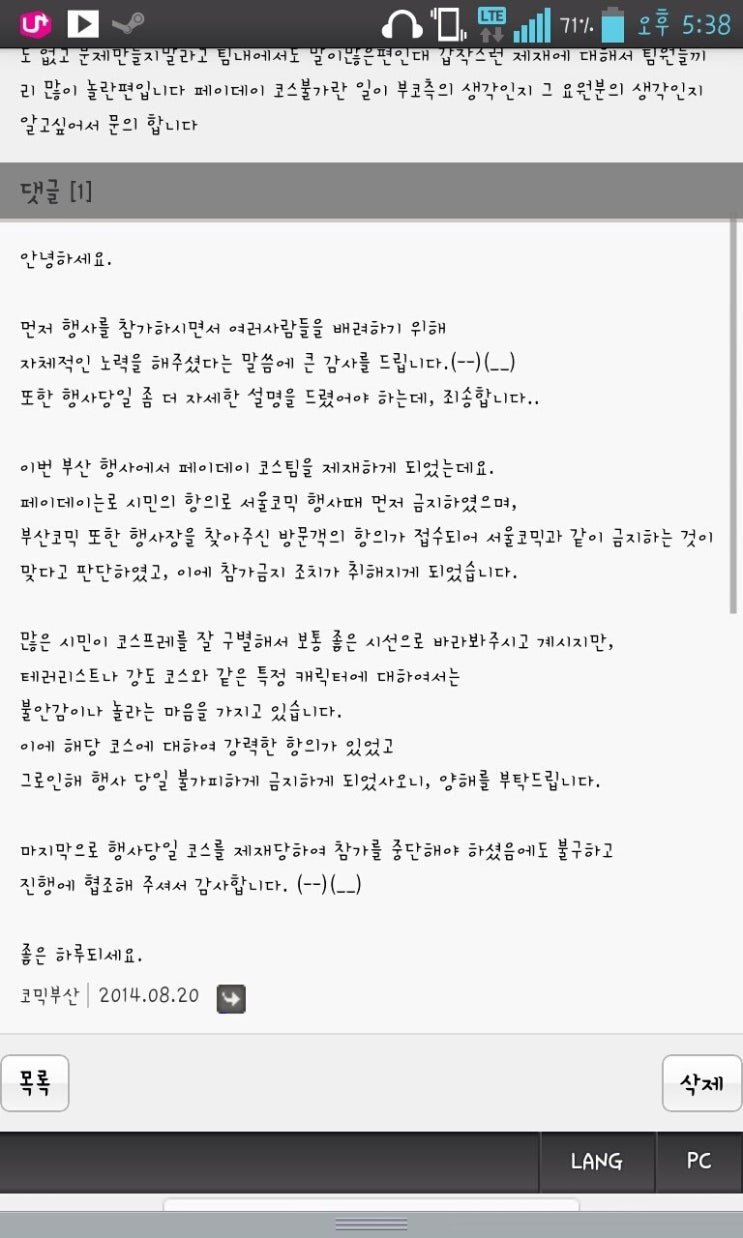 U+
LTE
71%
오후 5:38
도 없고 문제만들지말라고 팀내에서도 말이많은편인대 갑작스런 제재에 대해서 팀원들끼
리 많이 놀란편입니다 페이데이 코스불가란 일이 부코측의 생각인지 그 요원분의 생각인지
알고싶어서 문의 합니다
댓글 [1]
안녕하세요.
먼저 행사를 참가하시면서 여러사람들을 배려하기 위해
자체적인 노력을 해주셨다는 말씀에 큰 감사를 드립니다.(--)(__)
또한 행사당일 좀 더 자세한 설명을 드렸어야 하는데, 죄송합니다..
이번 부산 행사에서 페이데이 코스팀을 제재하게 되었는데요.
페이데이는로 시민의 항의로 서울코믹 행사때 먼저 금지하였으며,
부산코믹 또한 행사장을 찾아주신 방문객의 항의가 접수되어 서울코믹과 같이 금지하는 것이
맞다고 판단하였고, 이에 참가금지 조치가 취해지게 되었습니다.
많은 시민이 코스프레를 잘 구별해서 보통 좋은 시선으로 바라봐주시고 계시지만,
테러리스트나 강도 코스와 같은 특정 캐릭터에 대하여서는
불안감이나 놀라는 마음을 가지고 있습니다.
이에 해당 코스에 대하여 강력한 항의가 있었고
그로인해 행사 당일 불가피하게 금지하게 되었사오니, 양해를 부탁드립니다.
마지막으로 행사당일 코스를 제재당하여 참가를 중단해야 하셨음에도 불구하고
진행에 협조해 주셔서 감사합니다. (--)(__)
좋은 하루되세요.
코믹부산 | 2014.08.20
목록
삭제
LANG
PC